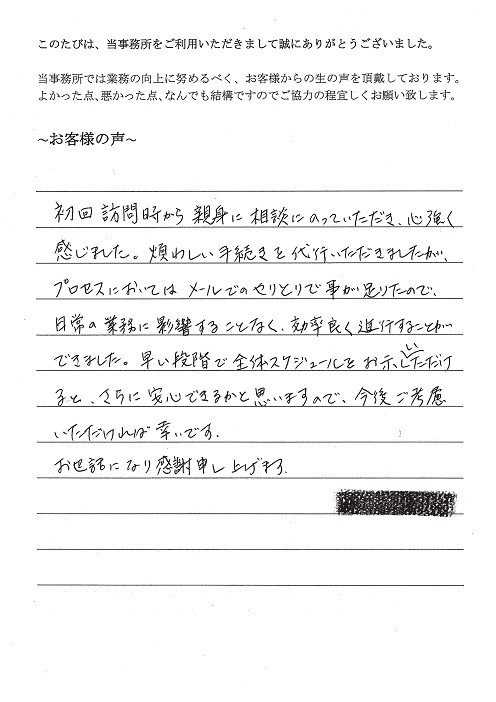 このたびは、当事務所をご利用いただきまして誠にありがとうございました。
当事務所では業務の向上に努めるべく、お客様からの生の声を頂戴しております。
よかった点、悪かった点、なんでも結構ですのでご協力の程宜しくお願い致します。
~お客様の声~
初回訪問時から親身に相談にのっていただき、心強く
感じました。煩わしい手続きを代行いただきましたが、
プロセスにおいてはメールでのやりとりで事が足りたので、
日常の業務に影響することなく、効率良く進行することが
できました。早い段階で全体スケジュールをお示しいただけ
ると、さらに安心できるかと思いますので、今後ご考慮
いただければ幸いです。
お世話になり感謝申し上げます。